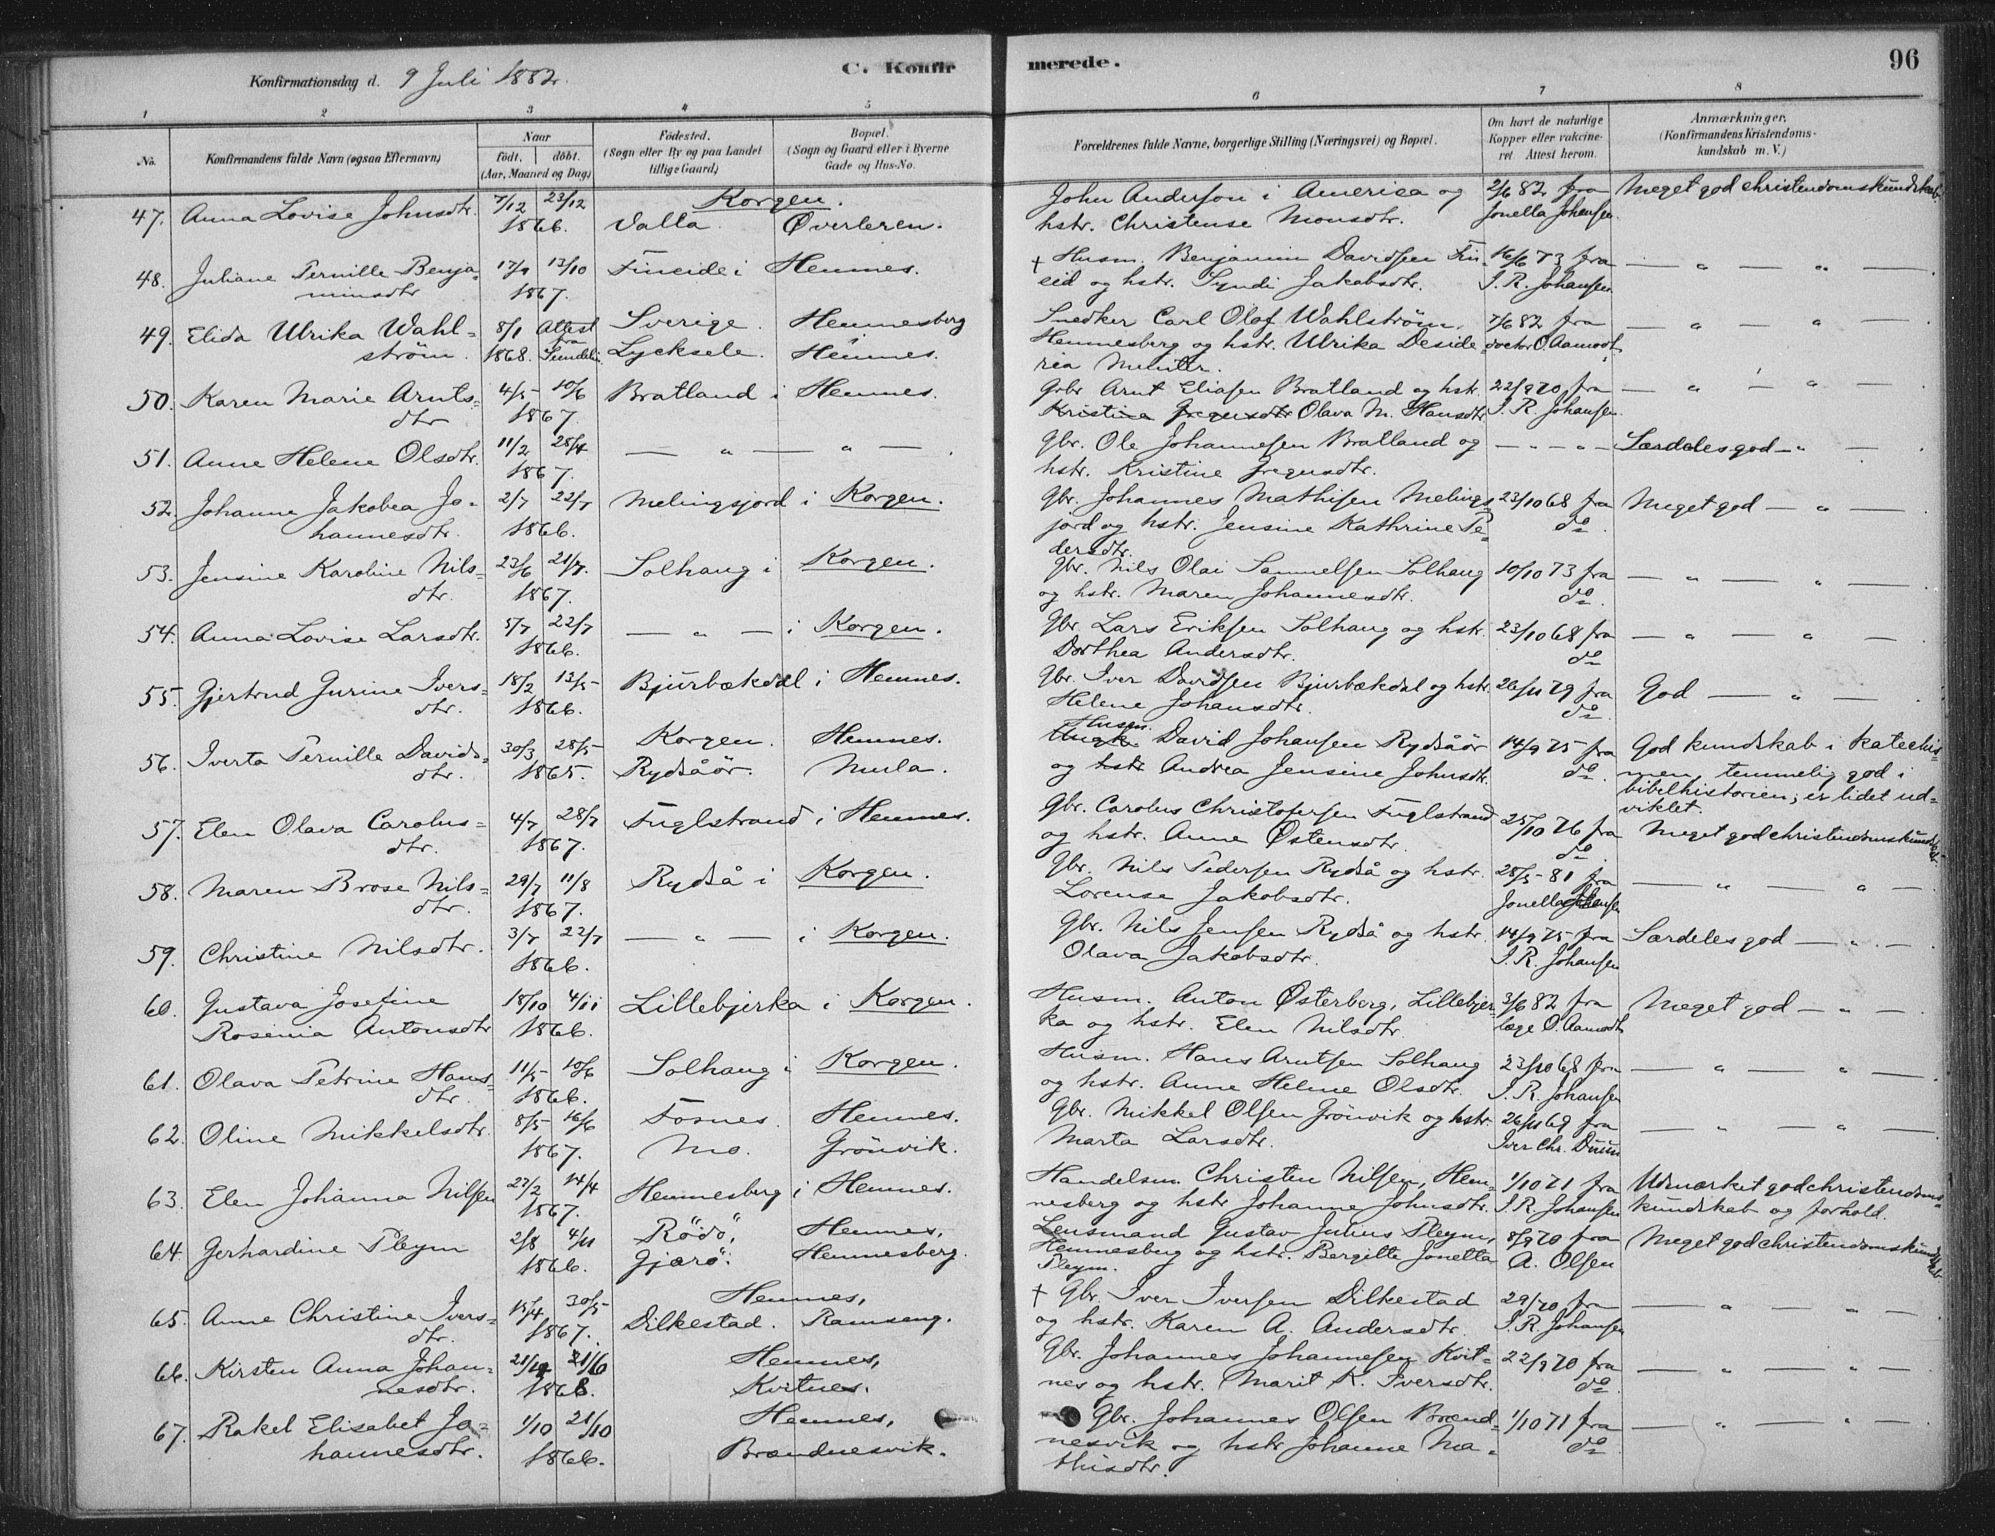 96
C. Konfirmerede.
Konfirmationsdag d. 9 Juli 1882.
1 2 3 4 5 6 7 8
No. Konfirmandens fulde Navn (ogsaa Efternavn) Naar født, døbt. (Aar, Maaned og Dag) Fødested. (Sogn eller By og paa Landet tillige Gaard) Bopæl. (Sogn og Gaard eller i Byerne Gade og Hus-No. Forældrenes fulde Navne, borgerlige Stilling (Næringsvei) og Bopæl. Om havt de naturlige Kopper eller vakcineret Attest herom. Anmærkninger. (Konfirmandens Kristendomskundskab m. V.)
47. Anna Lovise Johnsdtr. 7/12 23/12 1866. Korgen. Valla. Øverleren. John Anderson i America og hstr. Christense Monsdtr. 2/6 82 fra Jonella Johansen Meget god christendomskundskab
48. Juliane Pernille Benjaminsdtr 17/9 13/10 1867. Fineide i Hemnes. † Husm. Benjamin Davidsen Fineid og hstr. Syndi Jakobsdtr. 16/6 73 fra I. R. Johansen — " — " —
49. Elida Ulrika Wahlström. 8/1 1868. Attest fra Sverige. Lycksele. Hemnesberg Hemnes. Snedker Carl Olof Wahlström, Hemnesberg og hstr. Ulrika Desideria 7/6 82 fra doctor O. Aamodt — " — " —
50. Karen Marie Arntsdtr 4/5 10/6 1867. Bratland i Hemnes. Gbr. Arnt Eliasen Bratland og hstr. Kristine Gregusdtr Olava M. Hansdtr 22/9 70 fra I. R. Johansen — " — " —
51. Anne Helene Olsdtr. 11/2 28/4 1867. — " — " — Gbr. Ole Johannesen Bratland og hstr. Kristine Gregusdtr. — " — " — Særdeles god — " —
52. Johanne Jakobea Johannesdtr. 2/7 22/7 1866. Melingsjord i Korgen. Gbr. Johannes Mathisen Melingsjord og hstr. Jensine Kathrine Pedersdtr. 23/10 68 fra do Meget god — " —
53. Jensine Karoline Nilsdtr. 23/6 21/7. 1867. Solhaug i Korgen. Gbr. Nils Olai Samuelsen Solhaug og hstr. Maren Johannesdtr. 10/10 73 fra do. — " — " —
54. Anna Lovise Larsdtr. 5/7 22/7 1866. — " — i Korgen. Gbr. Lars Eriksen Solhaug og hstr. Dorthea Andersdtr. 23/10 68 fra do — " — " —
55. Gjertrud Gurine Iversdtr. 18/2 12/5 1866. Bjurbækdal i Hemnes. Gbr. Iver Davidsen Bjurbækdal og hstr. Helene Johansdtr. 26/11 79 fra do God — " —
56. Iverta Pernille Davidsdtr. 30/3 28/5 1865. Korgen. Rydsåör. Hemnes. Mula. Husm. David Johansen Rydsåör og hstr Andrea Jensine Johnsdtr. 14/9 75 fra do God kundskab i katechismen, temmelig god i bibelhistorien; er lidet udviklet.
57. Elen Olava Carolusdtr. 4/7 28/7 1867. Fuglstrand i Hemnes. Gbr. Carolus Christofersen Fuglstrand og hstr. Anne Østensdtr. 25/10 76 fra do Meget god christendomskundskab
58. Maren Brose Nilsdtr. 29/7 11/8 1867. Rydså i Korgen. Gbr. Nils Pedersen Rydså og hstr. Lorense Jakobsdtr. 28/5 81 fra Jonella Johansen — " — " —
59. Christine Nilsdtr. 3/7 22/7 1866. — " — i Korgen. Gbr. Nils Jensen Rydså og hstr. Olava Jakobsdtr. 14/9 75 fra I. R. Johansen Særdeles god — " —
60. Gustava Josefine Rosenia Antonsdtr 18/10 4/11 1866. Lillebjerka i Korgen. Husm. Anton Østerberg, Lillebjerka og hstr. Elen Nilsdtr. 3/6 82 fra læge O. Aamodt Meget god — " —
61. Olava Petrine Hansdtr. 11/5 10/6 1866. Solhaug i Korgen. Husm. Hans Arntsen Solhaug og hstr. Anne Helene Olsdtr. 23/10 68 fra I. R. Johansen — " — " —
62. Oline Mikkelsdtr. 8/5 16/6 1867. Fosnes. Mo. Hemnes. Grönvik. Gbr. Mikkel Olsen Grönvik og hstr. Marta Larsdtr. 26/11 69 fra Iver Chr. Duun — " — " —
63. Elen Johanna Nilsen 22/2 14/4 1867. Hemnesberg i Hemnes. Handelsm. Christen Nilsen, Hemnesberg og hstr Johanne Johnsdtr. 1/10 71 fra I. R. Johansen Udmærket god christendomskundskab og forhold.
64. Gerhardine Pleym 2/8 4/11 1866. Rödö, Gjærö. Hemnes, Hemnesberg. Lensmand Gustav Julius Pleym, Hemnesberg og hstr. Bergitte Jonetta Pleym. 8/9 70 fra A. Olsen Meget god christendomskundskab
65. Anne Christine Iversdtr. 15/4 30/5 1867. Hemnes, Dilkestad. Ramseng. † Gbr. Iver Iversen Dilkestad og hstr. Karen A. Andersdtr. 29/ 70 fra I. R. Johansen — " — " —
66. Kirsten Anna Johannesdtr. 21/6 1868. Hemnes, Kvitnes. Gbr. Johannes Johannesen Kvitnes og hstr. Marit K. Iversdtr. 22/9 70 fra do — " — " —
67. Rakel Elisabet Johannesdtr. 1/10 21/10 1866. Hemnes, Brændnesvik. Gbr. Johannes Olsen Brændnesvik og hstr Johanne Mathisdtr. 1/10 71 fra do — " — " —